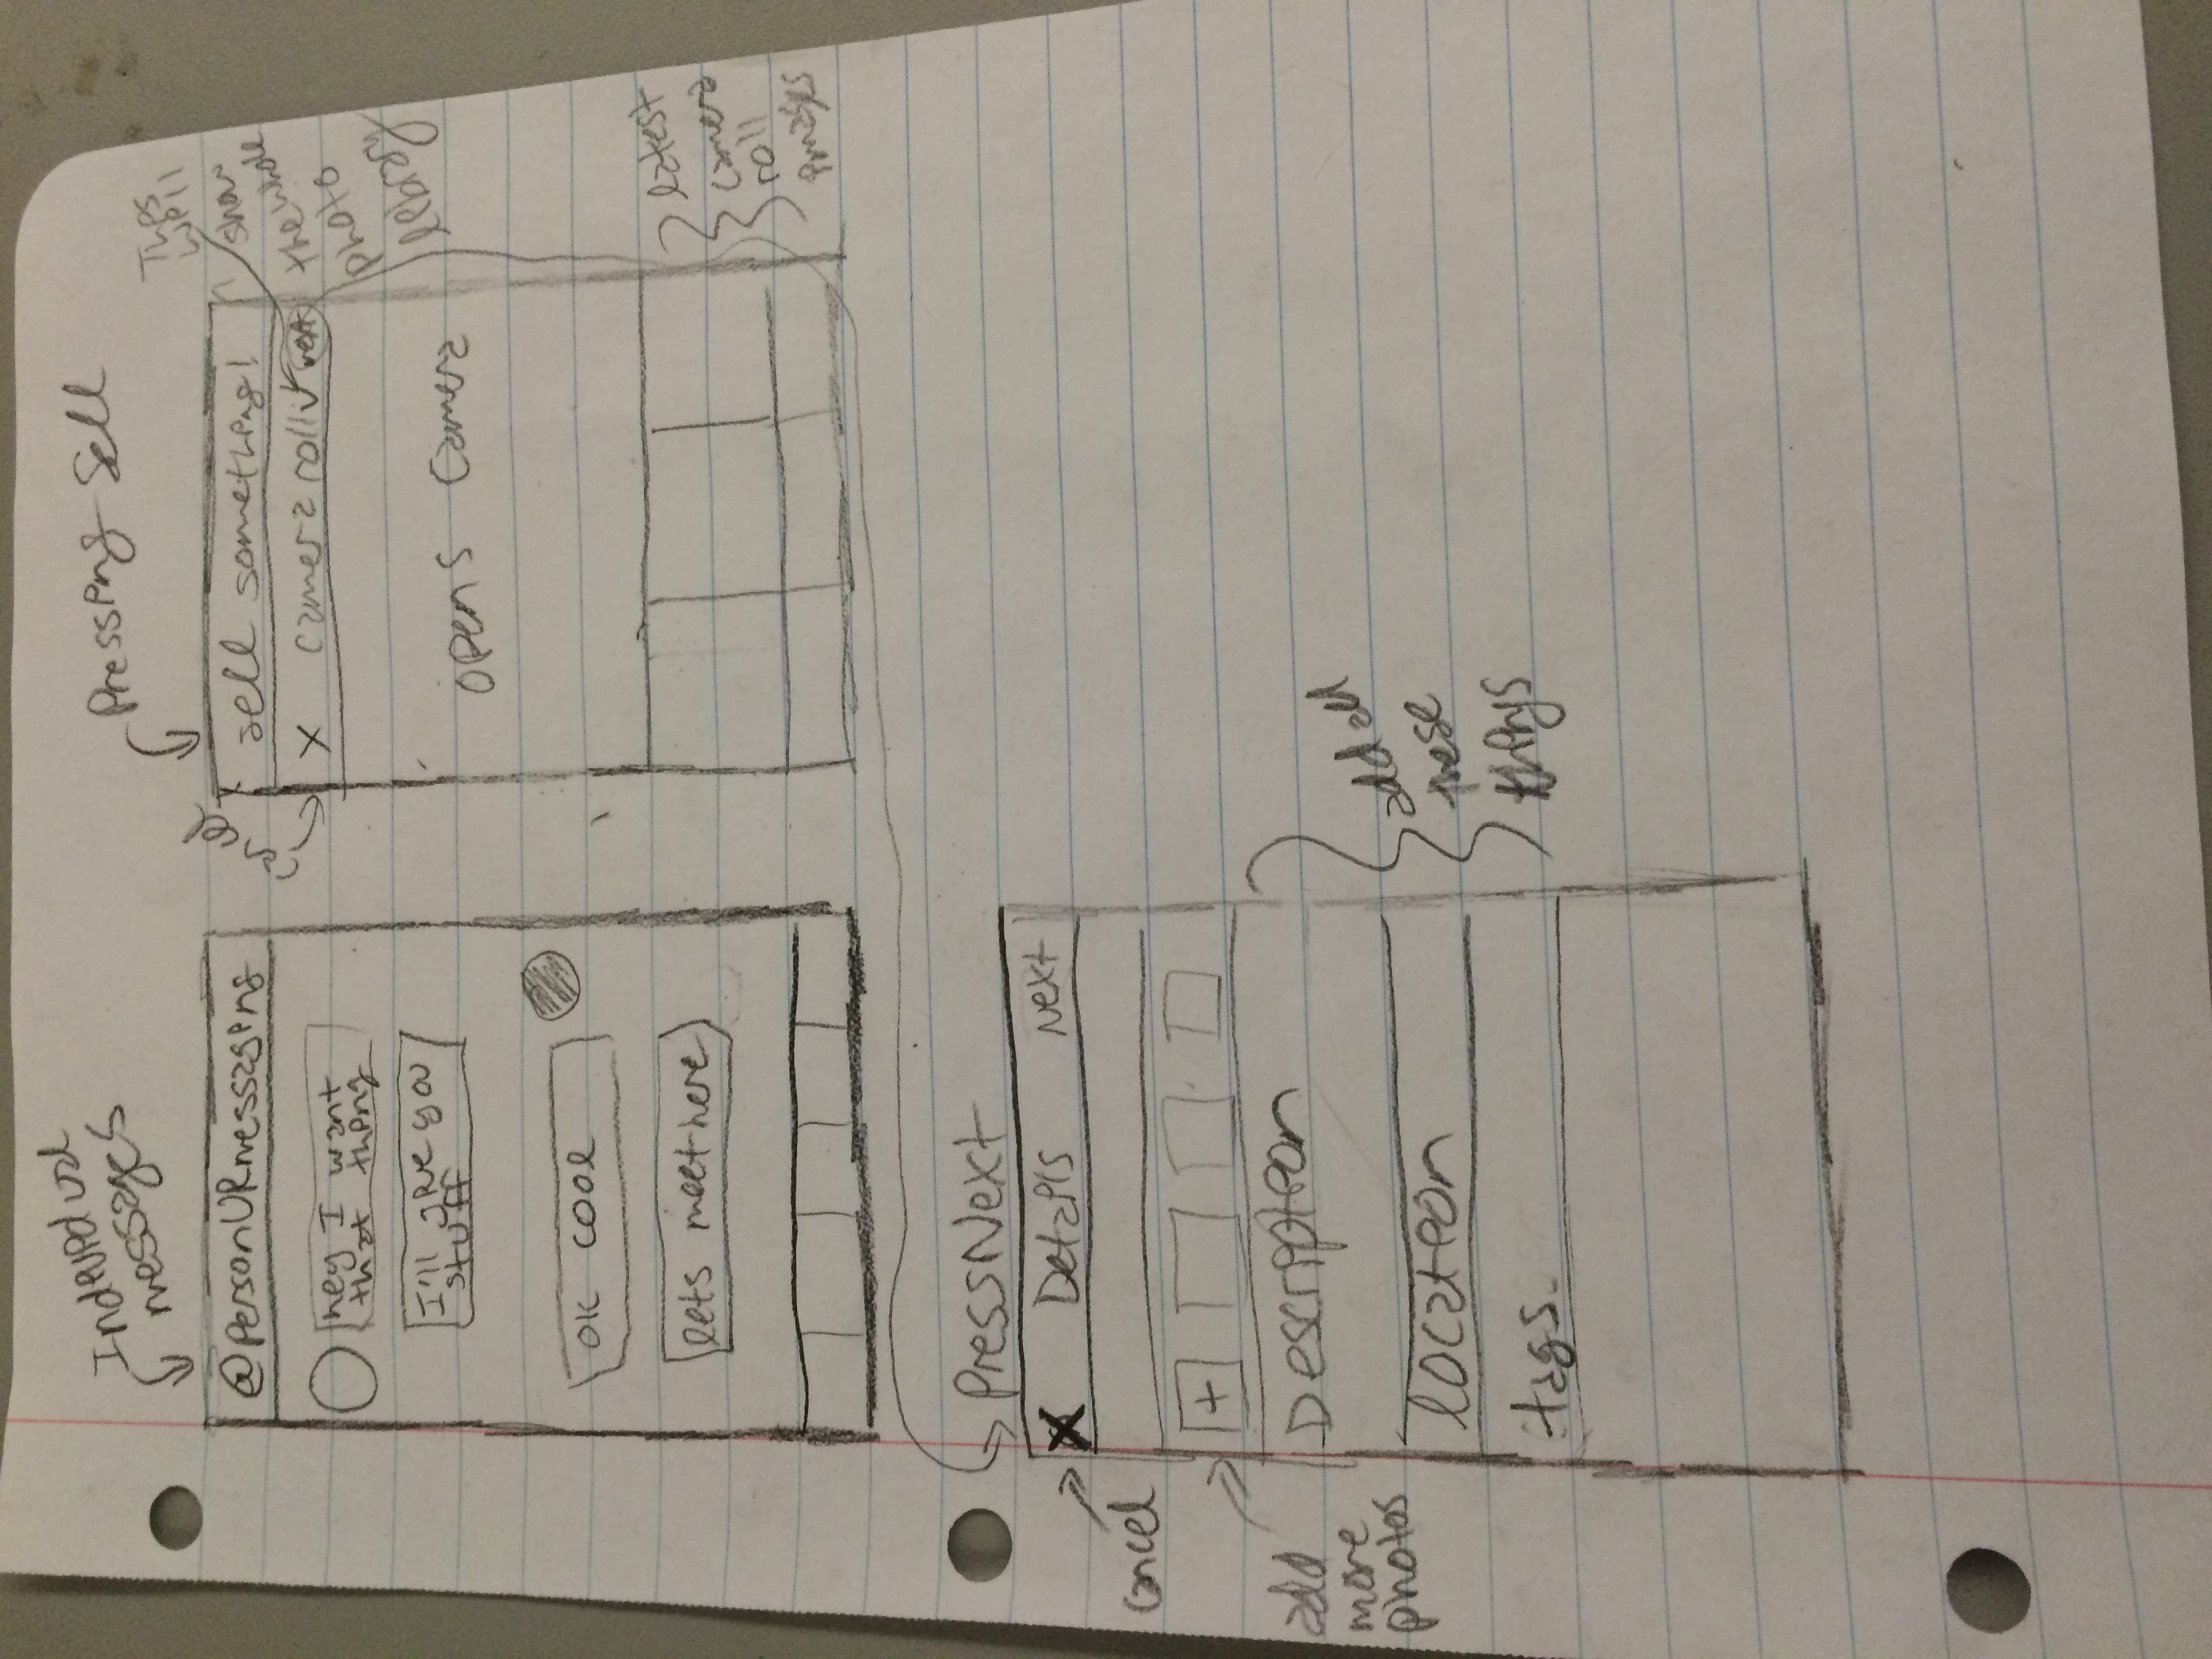 Individual
messages
@personURmessaging
hey I want
that thing
I'll give you
stuff
ok cool
lets meet here
Pressing Sell
cancel
sell something!
X camera roll next
opens camera
This
will
show
the whole
photo
library
latest
camera
roll
images
Press Next
X Details Next
cancel
+
add
more
photos
Description
location
tags
add all
these
things